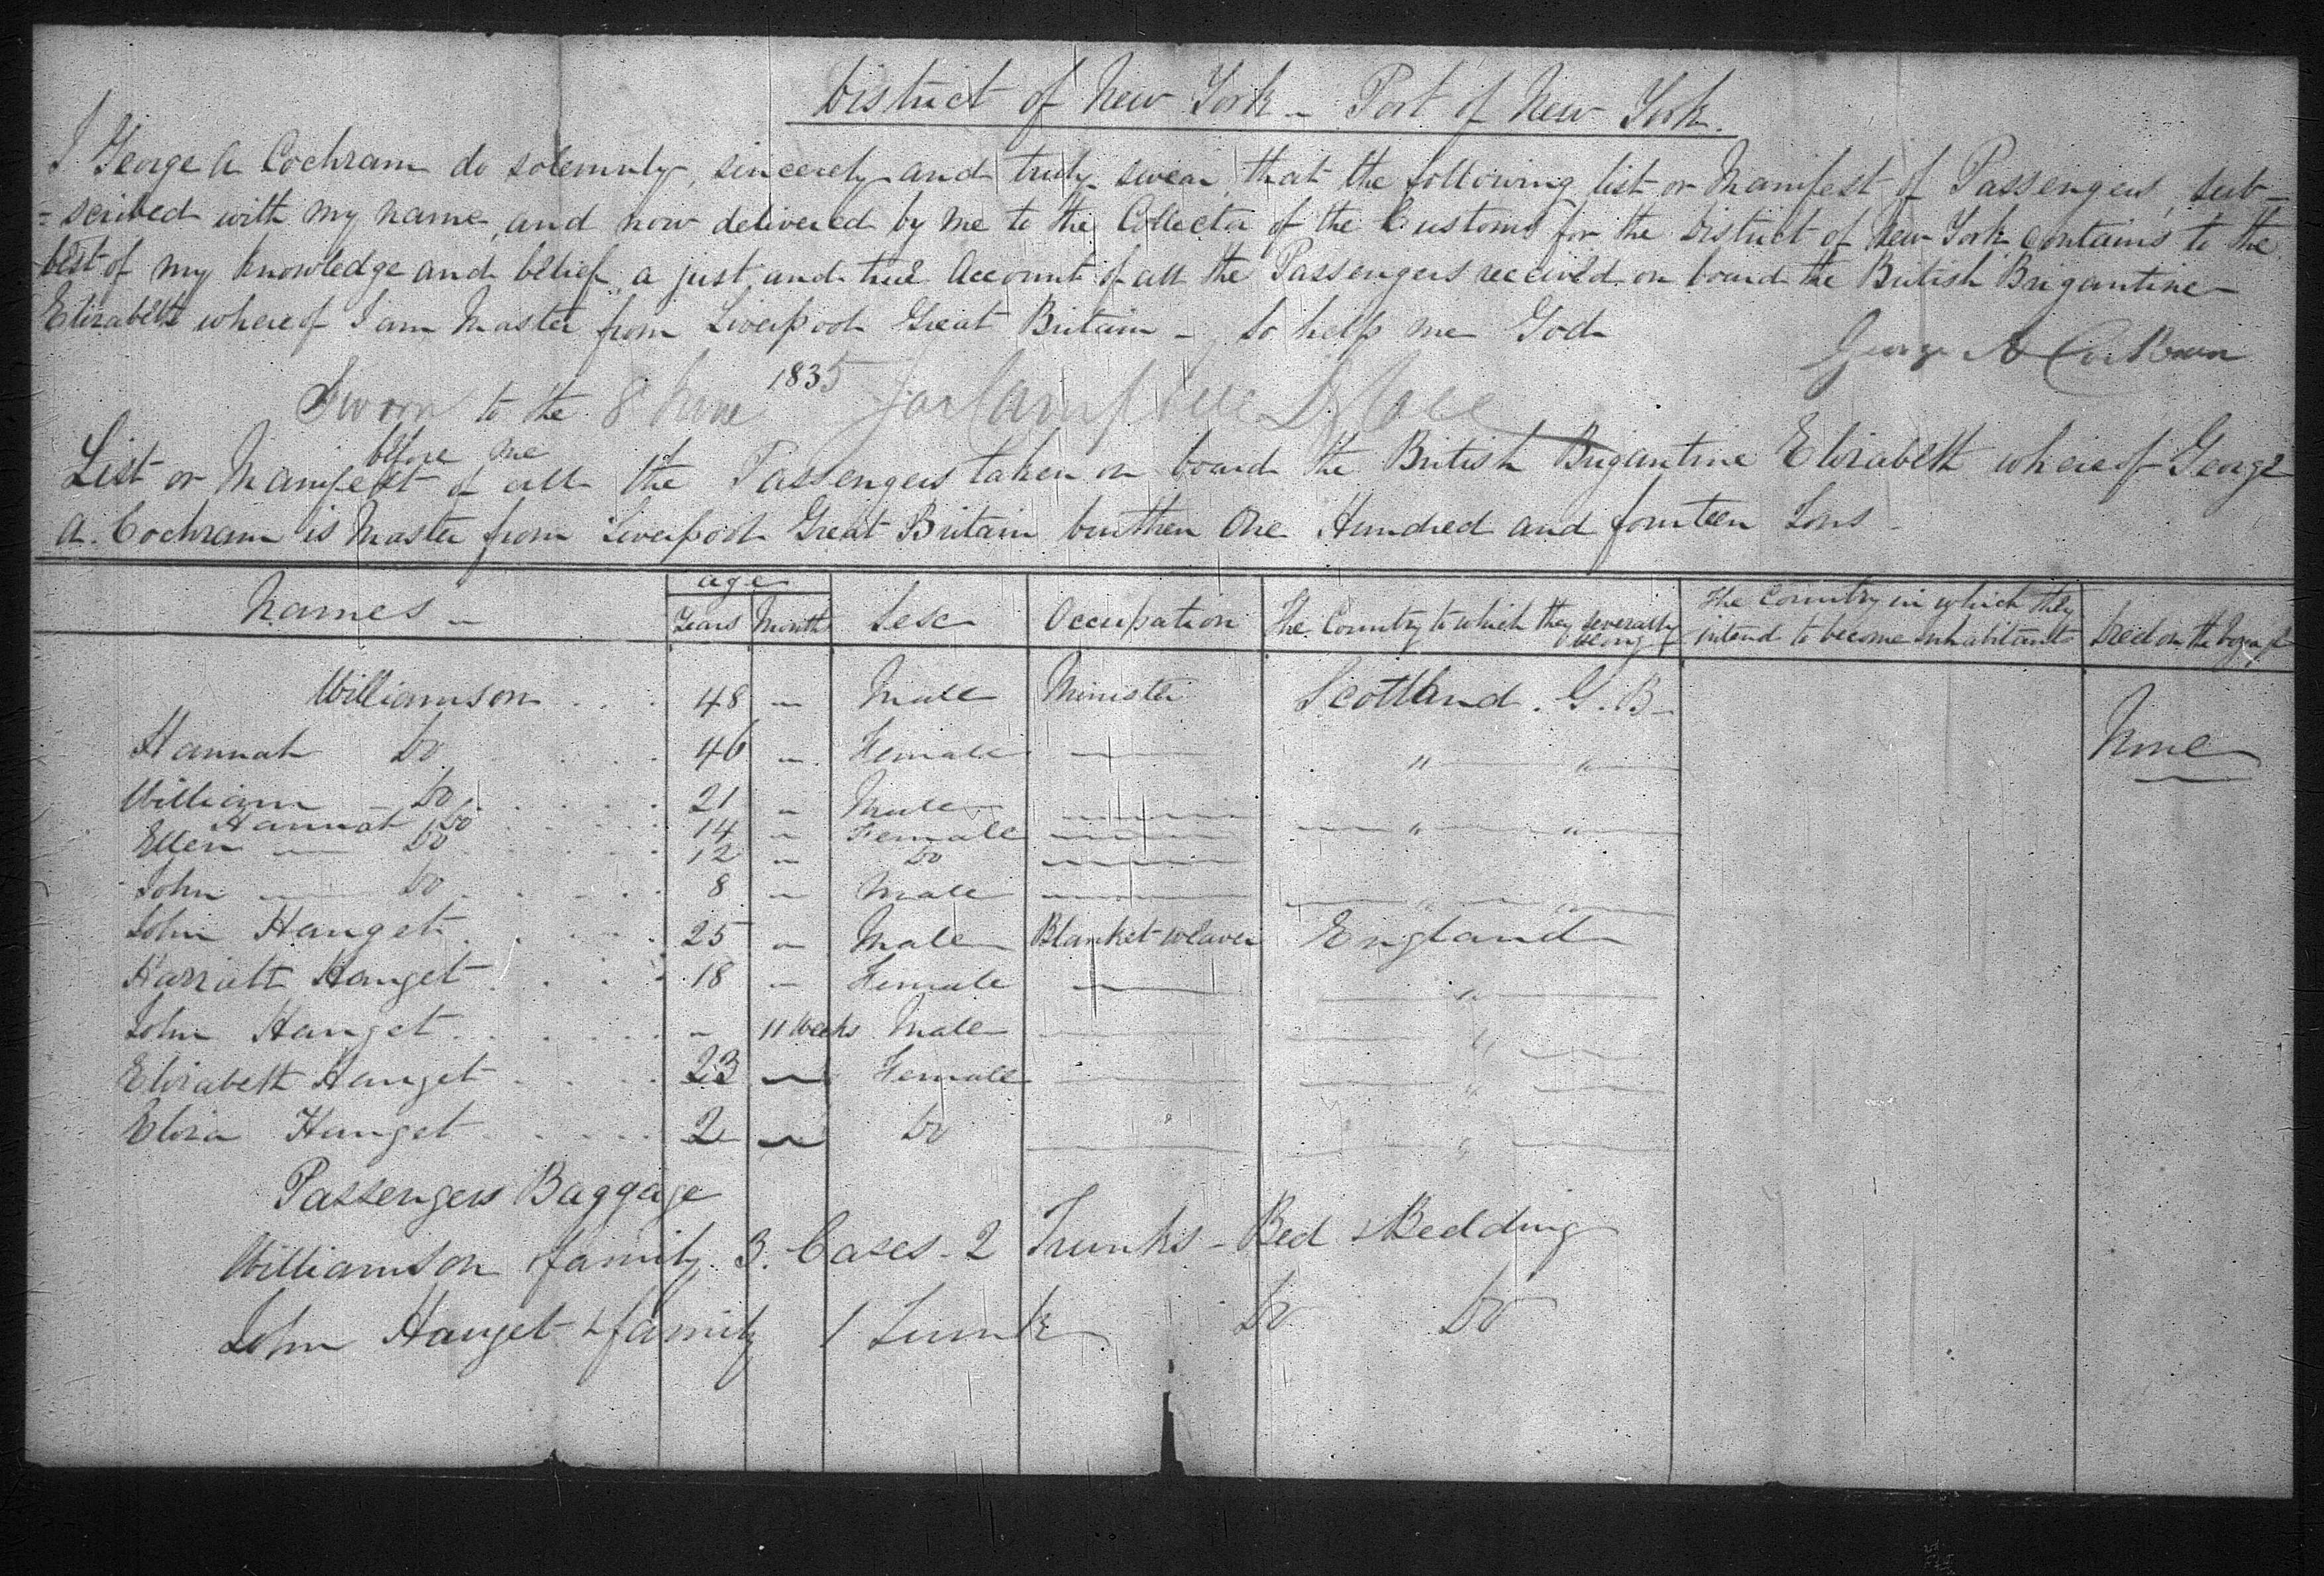 District of New York - Port of New York.
I George A Cochram do solemnly, sincerely and truly swear that the following list or Manifest of Passengers, sub-
=scribed with my name, and now delivered by me to the Collector of the Customs for the District of New York contains to the
best of my knowledge and belief, a just and true Account of all the Passengers received on board the British Brigantine
Elizabeth whereof I am Master from Liverpool Great Britain - So help me God
George A
Sworn to the 8 June 1835
before me
List or Manifest of all the Passengers taken on board the British Brigantine Elizabeth whereof George
A. Cochram is Master from Liverpool Great Britain burthen One Hundred and fourteen Tons -
Names - age Years Months Sex Occupation The Country to which they severally belong The Country in which they intend to become inhabitants Died on the Voyage
Williamson . . . 48 " Male Minister Scotland . G. B -
Hannah Do . . . 46 " Female " " None
William - Do . . . 21 " Male
Hannah Do . . . 14 " Female " "
Ellen - Do . . . 12 " Do
John - Do . . . 8 " Male " "
John Hanget . . . 25 " Male Blanket weaver England
Harriatt Hanget . . . 18 " Female "
John Hanget . . . - 11 Weeks Male "
Elizabeth Hanget . . . 23 " Female "
Eliza Hanget . . . 2 " Do "
Passengers Baggage
Williamson family. 3. Cases - 2 Trunks - Bed & Bedding
John Hanget & family 1 Trunk Do Do